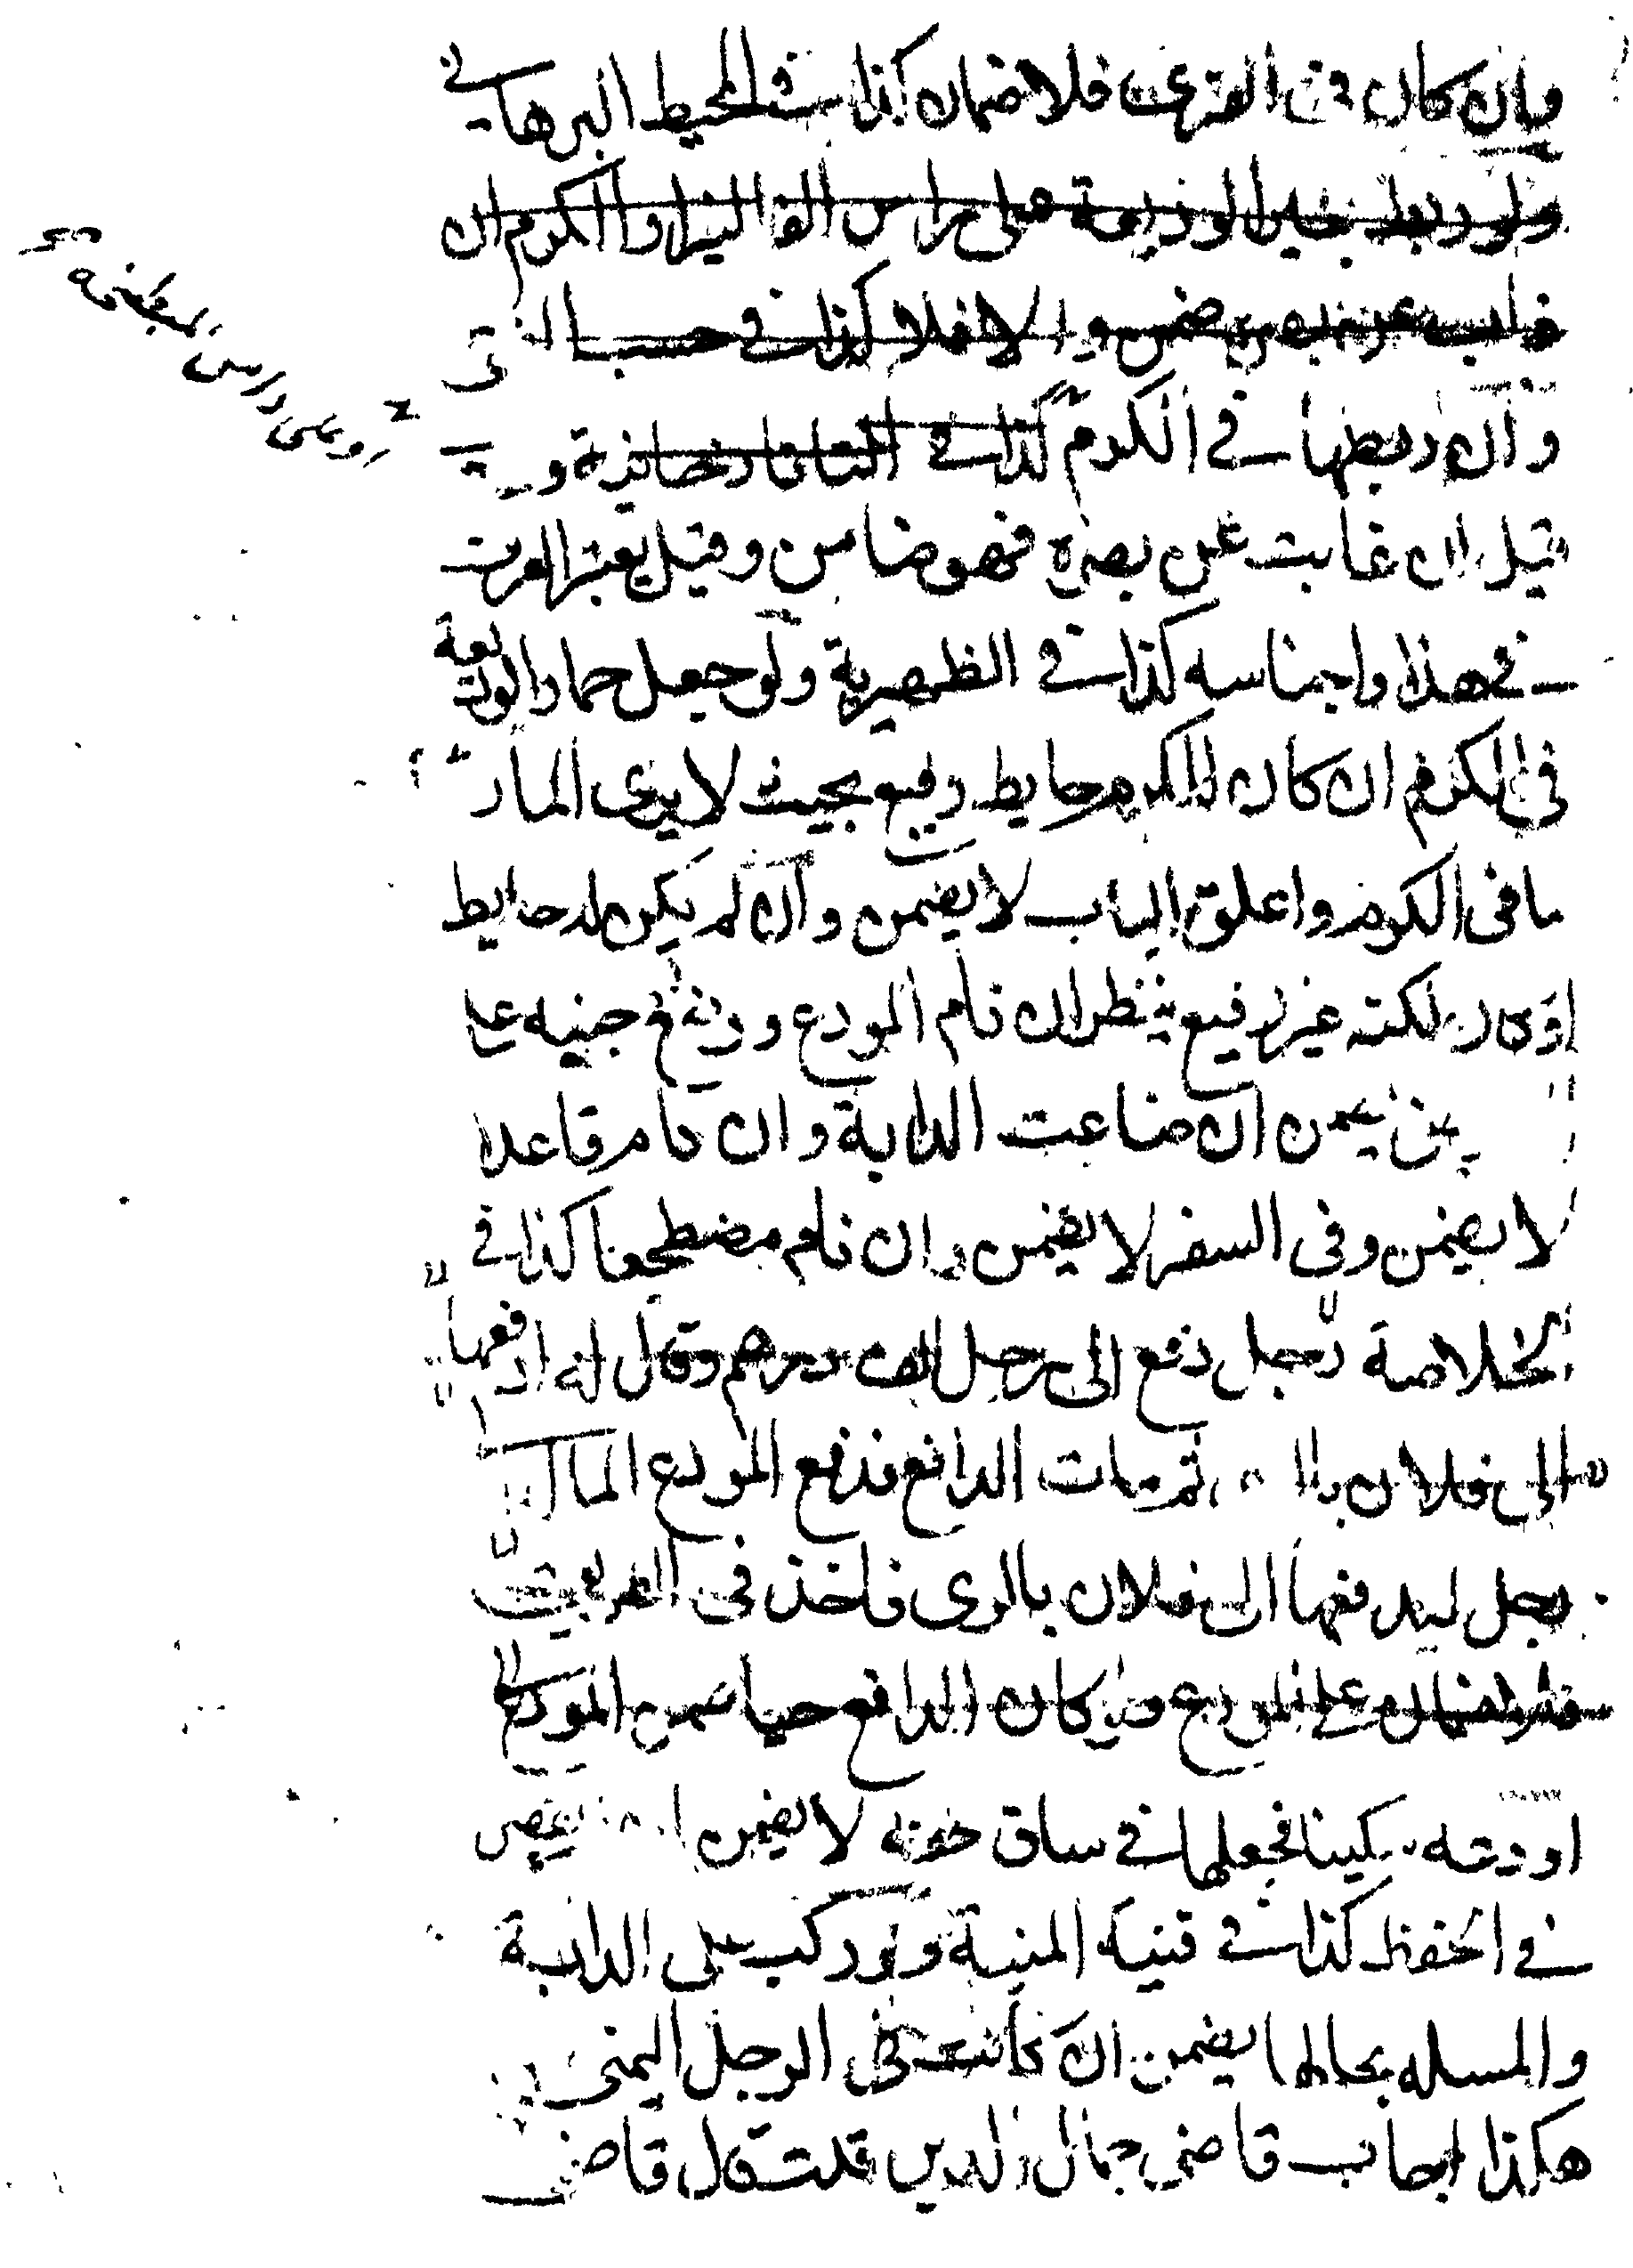 وان كان في القرى فلا ضمان كذا في المحيط البرهاني
ولو ربط الوديعة على راس الفاليز او الكرم ان
غاب عن بصره ضمن والا فلا كذا في حسب المفتى
وان ربطها في الكرم كذا في التاتارخانية و
قيل ان غابت عن بصره فهو ضامن وقيل يعتبر العرف
في هذا واجناسه كذا في الظهيرية ولو جعل حمار الوديعة
في الكرم ان كان للكرم حايط رفيع بحيث لا يرى المار
ما في الكرم واغلق الباب لا يضمن وان لم يكن له حايط
او كان لكنه غير رفيع ينظر ان نام المودع ووضع جنبه على
يضمن ان ضاعت الدابة وان نام قاعدا
لا يضمن وفي السفر لا يضمن وان نام مضطجعا كذا في
الخلاصة رجل دفع الى رجل الف درهم وقال له ادفعها
الى فلان ثم مات الدافع فدفع المودع المال
رجل ليدفعها الى فلان بالرى فاخذ في الطريق
ضمان على المودع ولو كان الدافع حيا ضمن المودع
اودعه سكينا فجعلها في ساق خفه لا يضمن يقصر
في الحفظ كذا في قنية المنية ولو ركب على الدابة
والمسله بحالها يضمن ان كانت في الرجل اليمنى
هكذا اجاب قاضى جمال الدين قلت قال قاضى
او على راس المبطخة